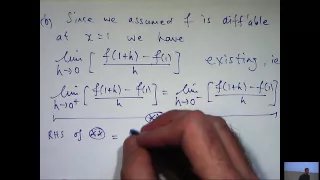 (b) Since we assumed f is diff'able
at x=1 we have
lim h→0 [ f(1+h) - f(1) / h ] existing, i.e.
lim h→0⁺ [ f(1+h) - f(1) / h ] = lim h→0⁻ [ f(1+h) - f(1) / h ]
RHS of ** =